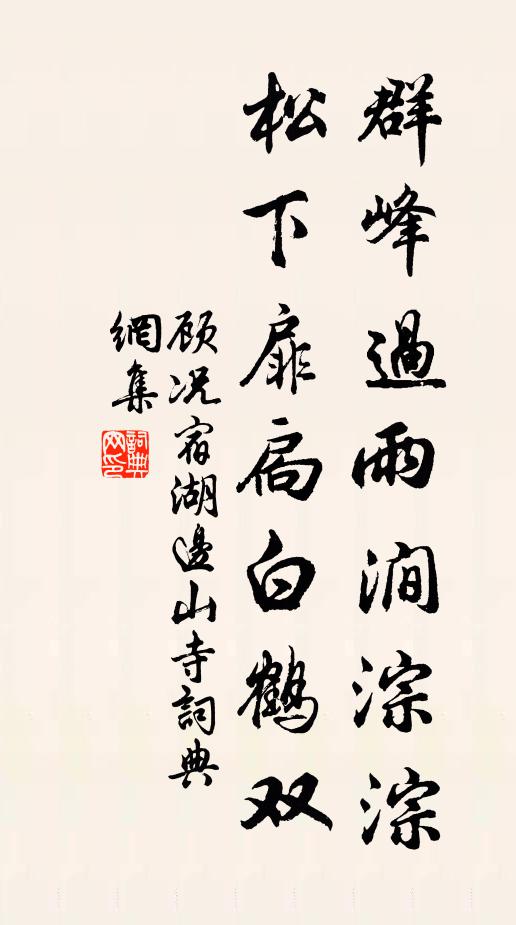 群峰過雨澗淙淙
松下扉扃白鶴双
顾况宿湖邊山寺詞典
網集
詞典
网印